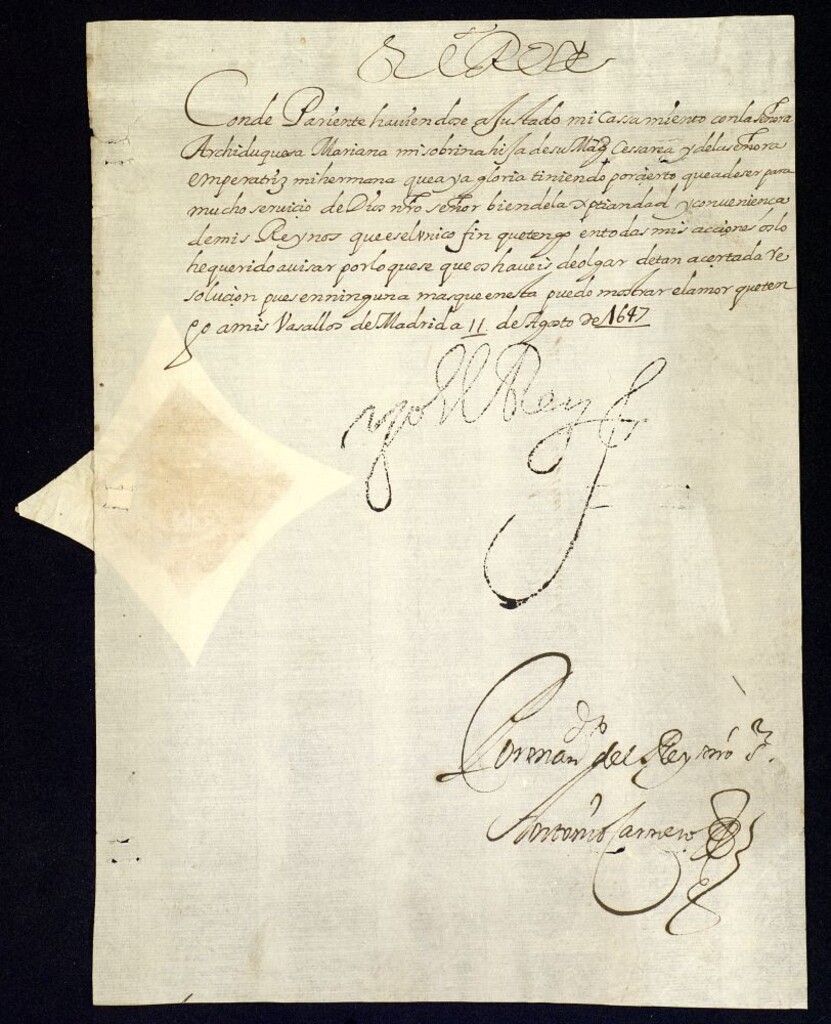 El Rey
Conde Pariente haviendose ajustado mi cassamiento con la señora
Archiduquesa Mariana mi sobrina hija de su Magd Cessarea y dela señora
emperatriz mi hermana que aya gloria tiniendo por cierto que a de ser para
mucho servicio de Dios nro señor bien dela xptiandad y conveniencia
de mis Reynos que es el Unico fin que tengo en todas mis acciones os lo
he querido avisar por lo que se que os haveis de olgar de tan acertada re
solucion pues en ninguna mas que en esta puedo mostrar el amor que ten
go a mis Vasallos de Madrid a 11 de Agosto de 1647
yo el Rey
Por mando del Rey nro sr.
Antonio Carnero